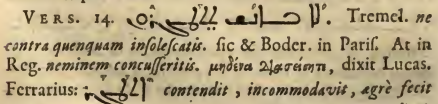 VERS. 14. Tremel. ne
contra quenquam insolescatis. sic & Boder. in Paris. At in
Reg. neminem concusseritis. μηδένα διασείσητε, dixit Lucas.
Ferrarius: contendit, incommodavit, ægrè fecit